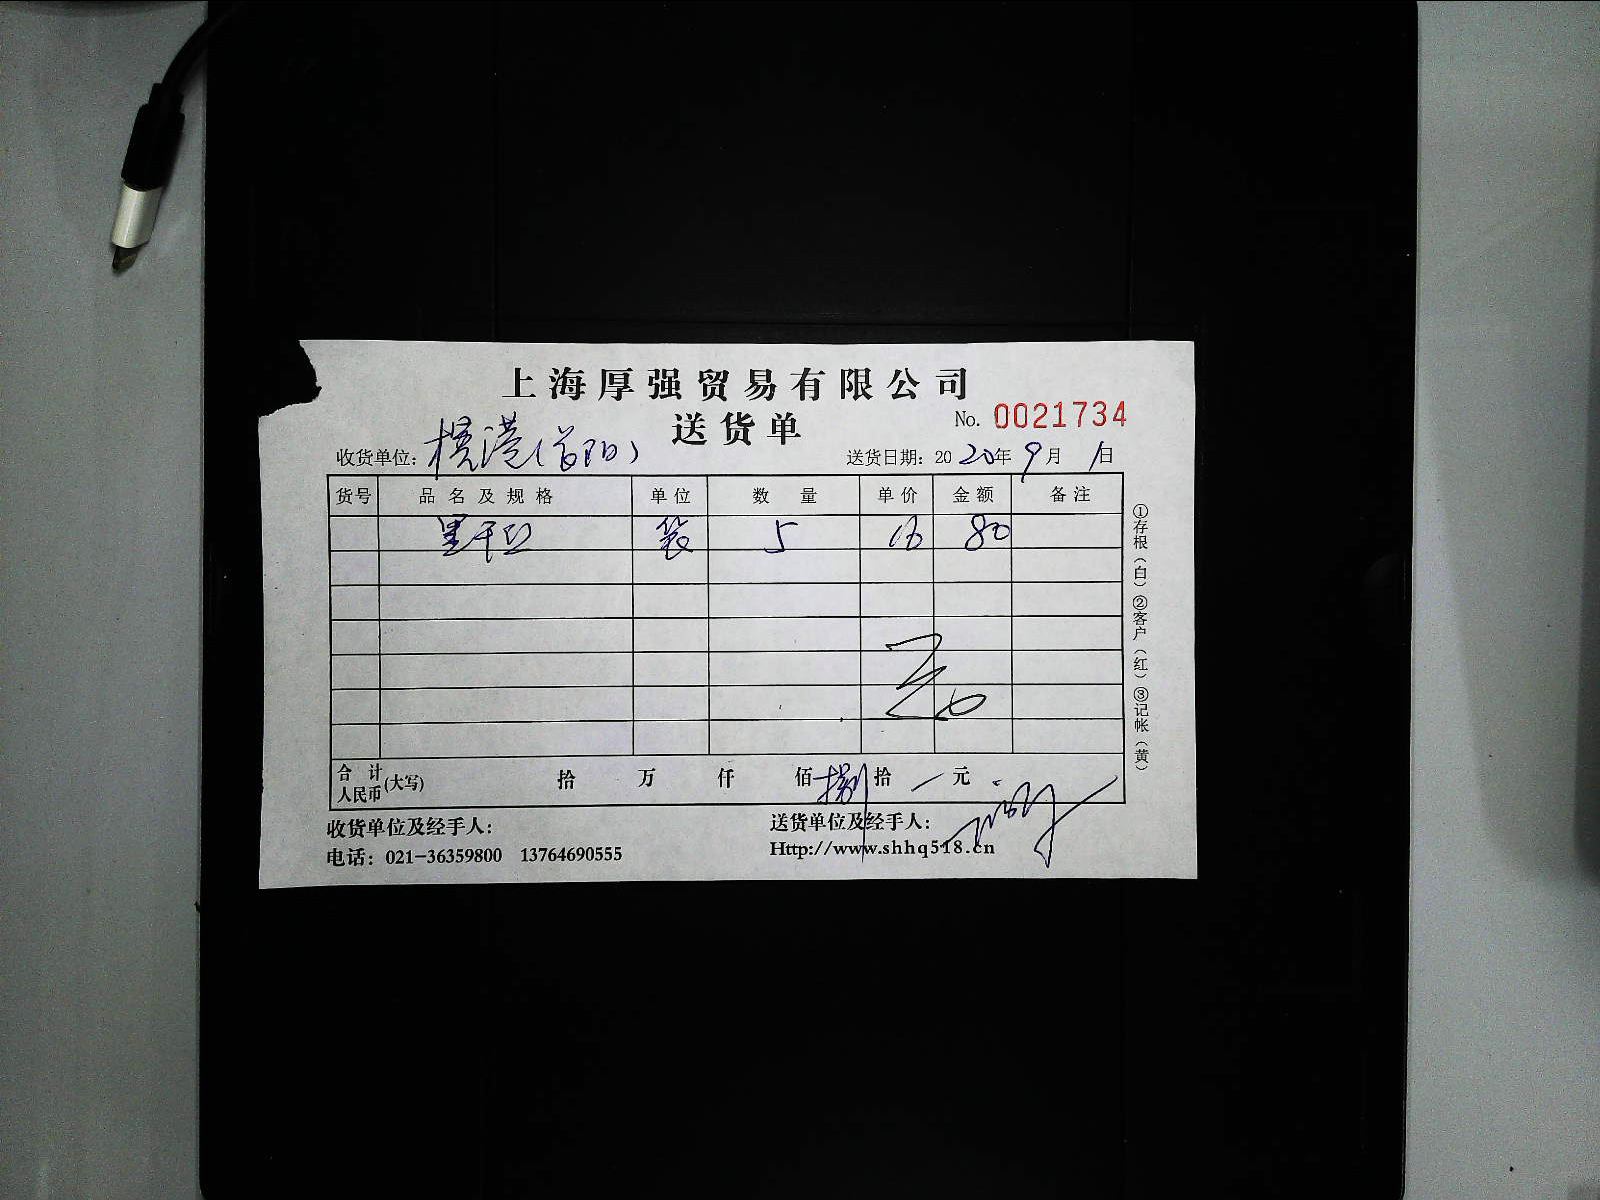 上海厚强贸易有限公司
送货单
No. 0021734
收货单位：横港（首阳）
送货日期：2020年9月1日
货号 品名及规格 单位 数量 单价 金额 备注
黑干豆 袋 5 16 80
合计人民币(大写) 拾 万 仟 佰捌拾 一元
收货单位及经手人：
送货单位及经手人：
电话：021-36359800 13764690555
Http://www.shhq518.cn
①存根（白）②客户（红）③记帐（黄）